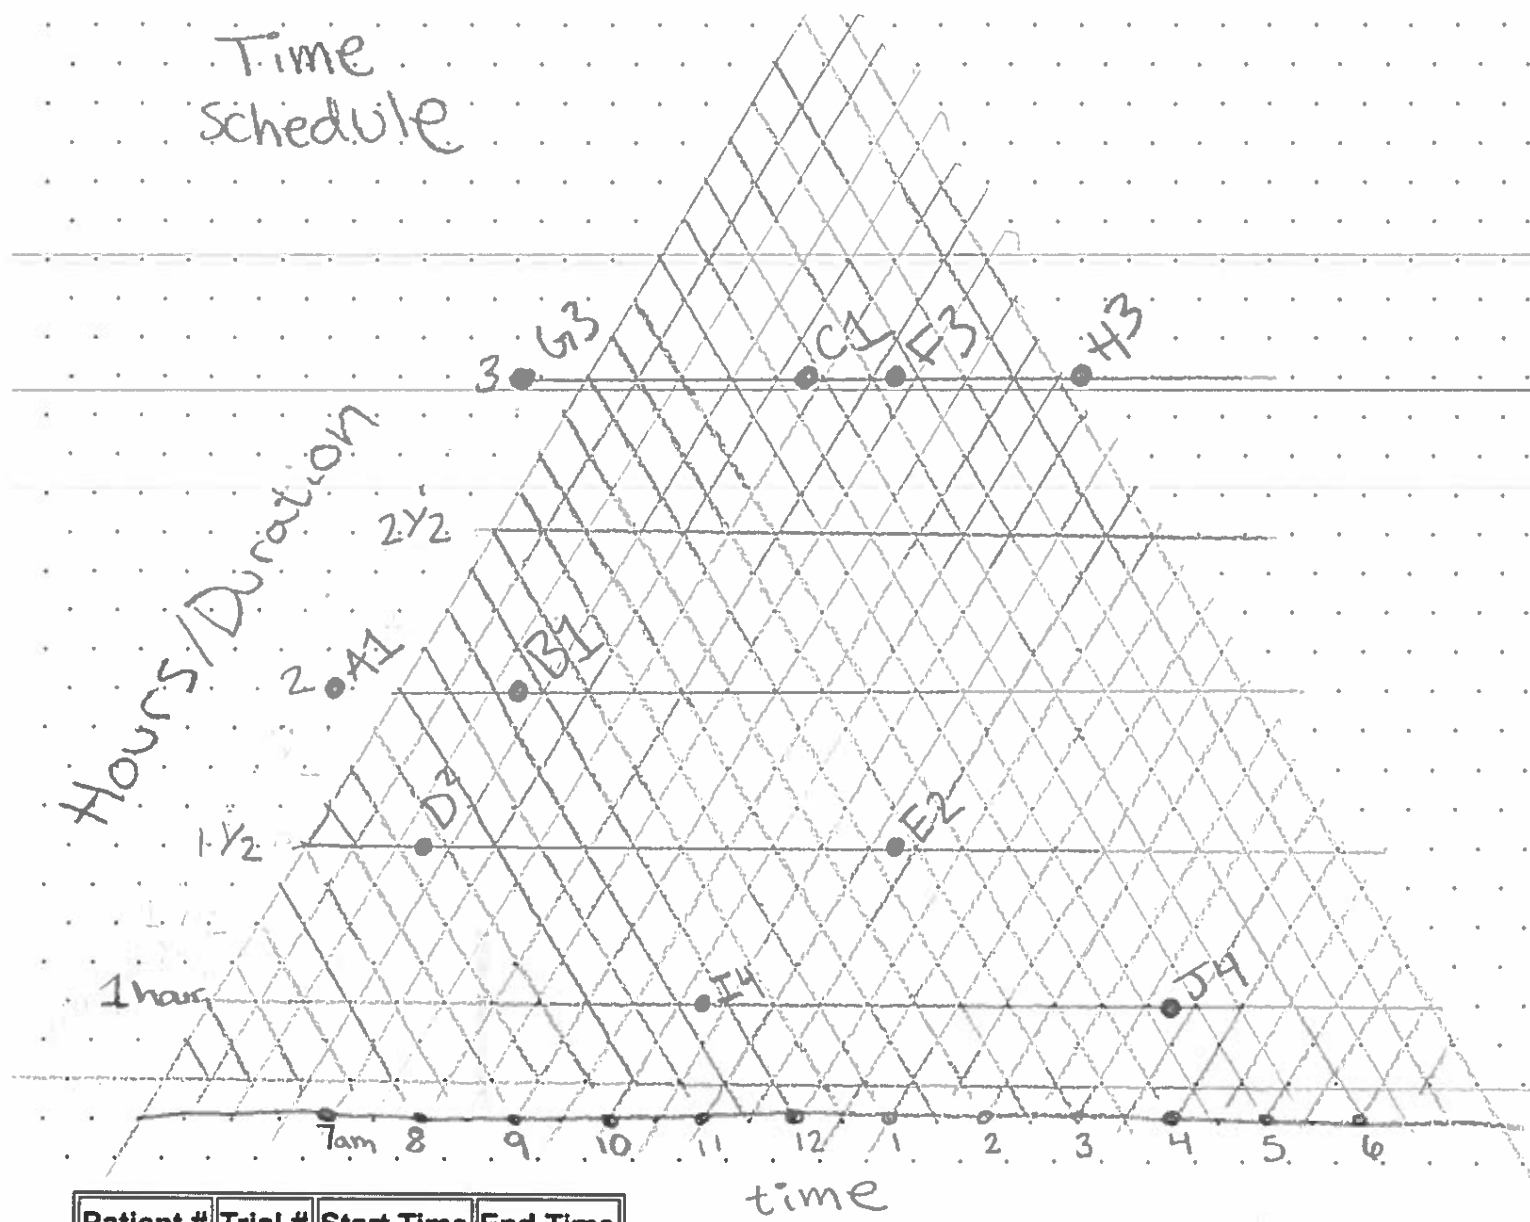 Time
Schedule
3 G3 C1 F3 H3
Hours/Duration
2 1/2
2 A1 B1
1 1/2 D2 E2
1 hour I4 J4
7am 8 9 10 11 12 1 2 3 4 5 6
time
Patient # Trial # Start Time End Time